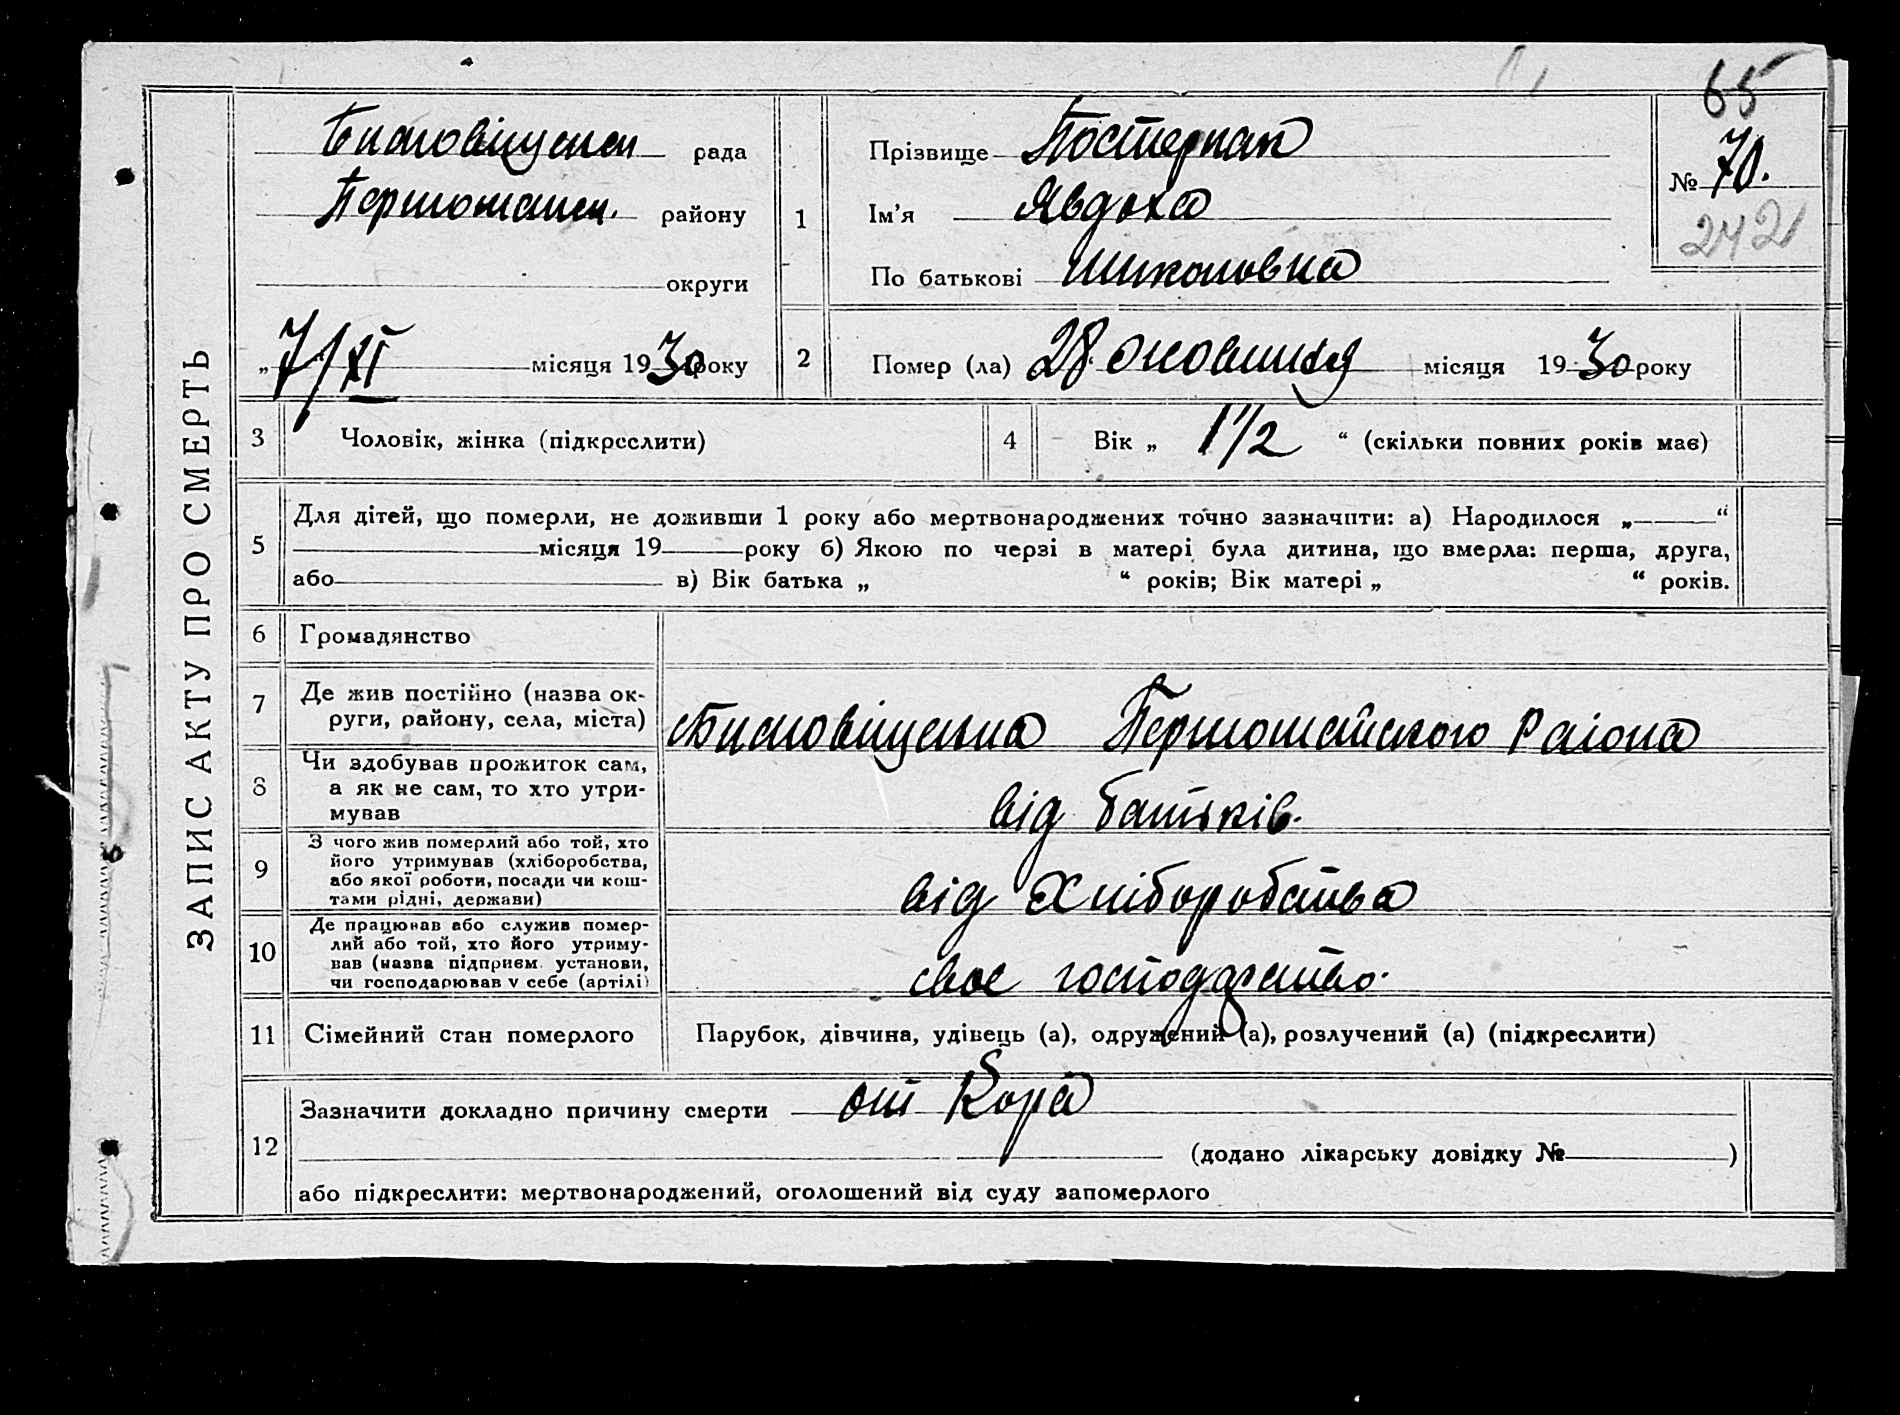 65
ЗАПИС АКТУ ПРО СМЕРТЬ
рада
району
округи
„7/XI місяця 1930 року
1
Прізвище Постернак
Ім'я Явдоха
По батькові
№ 70.
242
2
Помер (ла) 28 місяця 1930 року
3
Чоловік, жінка (підкреслити)
4
Вік „ 1 1/2 “ (скільки повних років має)
5
Для дітей, що померли, не доживши 1 року або мертвонароджених точно зазначити: а) Народилося „ “
місяця 19 року б) Якою по черзі в матері була дитина, що вмерла: перша, друга,
або в) Вік батька „ “ років; Вік матері „ “ років.
6
Громадянство
7
Де жив постійно (назва ок-
руги, району, села, міста)
Первомайского Раіона
8
Чи здобував прожиток сам,
а як не сам, то хто утри-
мував
від батьків.
9
З чого жив померлий або той, хто
його утримував (хліборобства,
або якої роботи, посади чи кош-
тами рідні, держави)
від Хліборобства
10
Де працював або служив помер-
лий або той, хто його утриму-
вав (назва підприєм. установи,
чи господарював у себе (артілі)
своє господарство.
11
Сімейний стан померлого
Парубок, дівчина, удівець (а), одружений (а), розлучений (а) (підкреслити)
12
Зазначити докладно причину смерти от Кора
(додано лікарську довідку № )
або підкреслити: мертвонароджений, оголошений від суду запомерлого